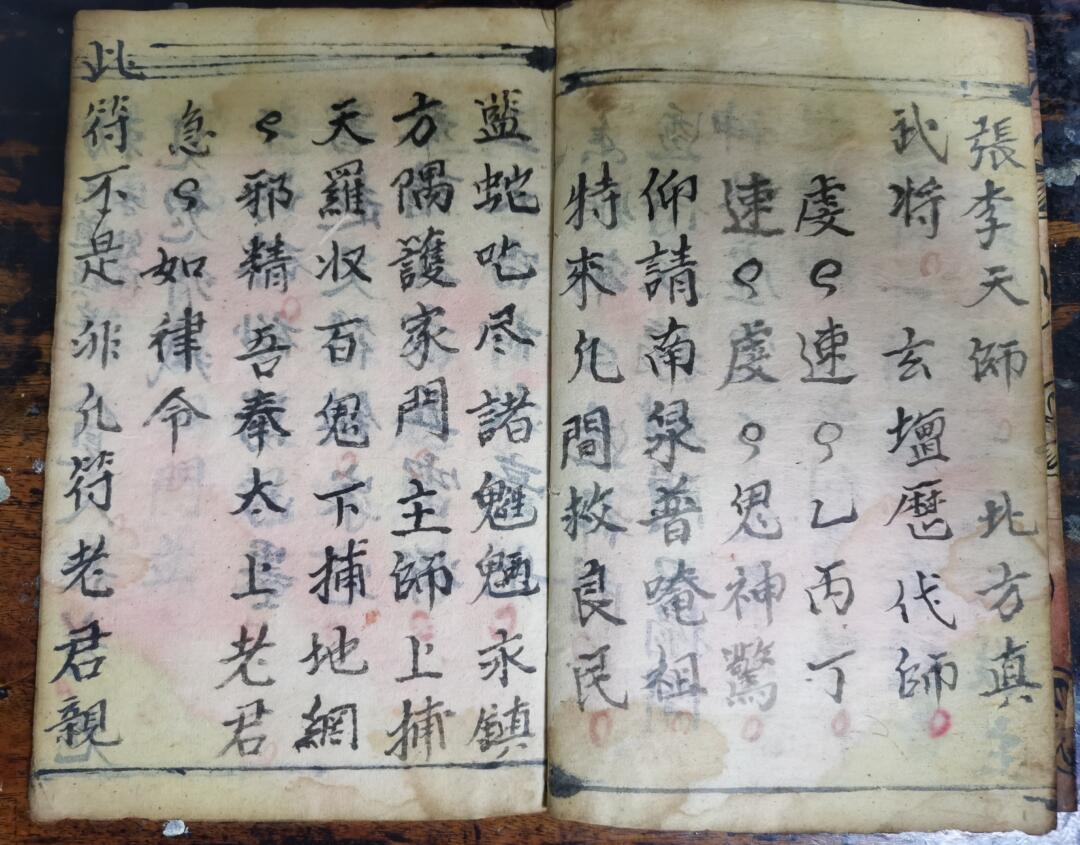 張李天師 北方真
武將 玄壇曆代師
虔〻速〻乙丙丁
速〻虔〻鬼神驚
仰請南泉普唵祖
特來凡間救良民
蓝蛇吃尽諸魁魎永鎮
方隅護家門主師上捕
天羅収百鬼下捕地網
〻邪精吾奉太上老君
急〻如律令
此符不是非凡符老君親